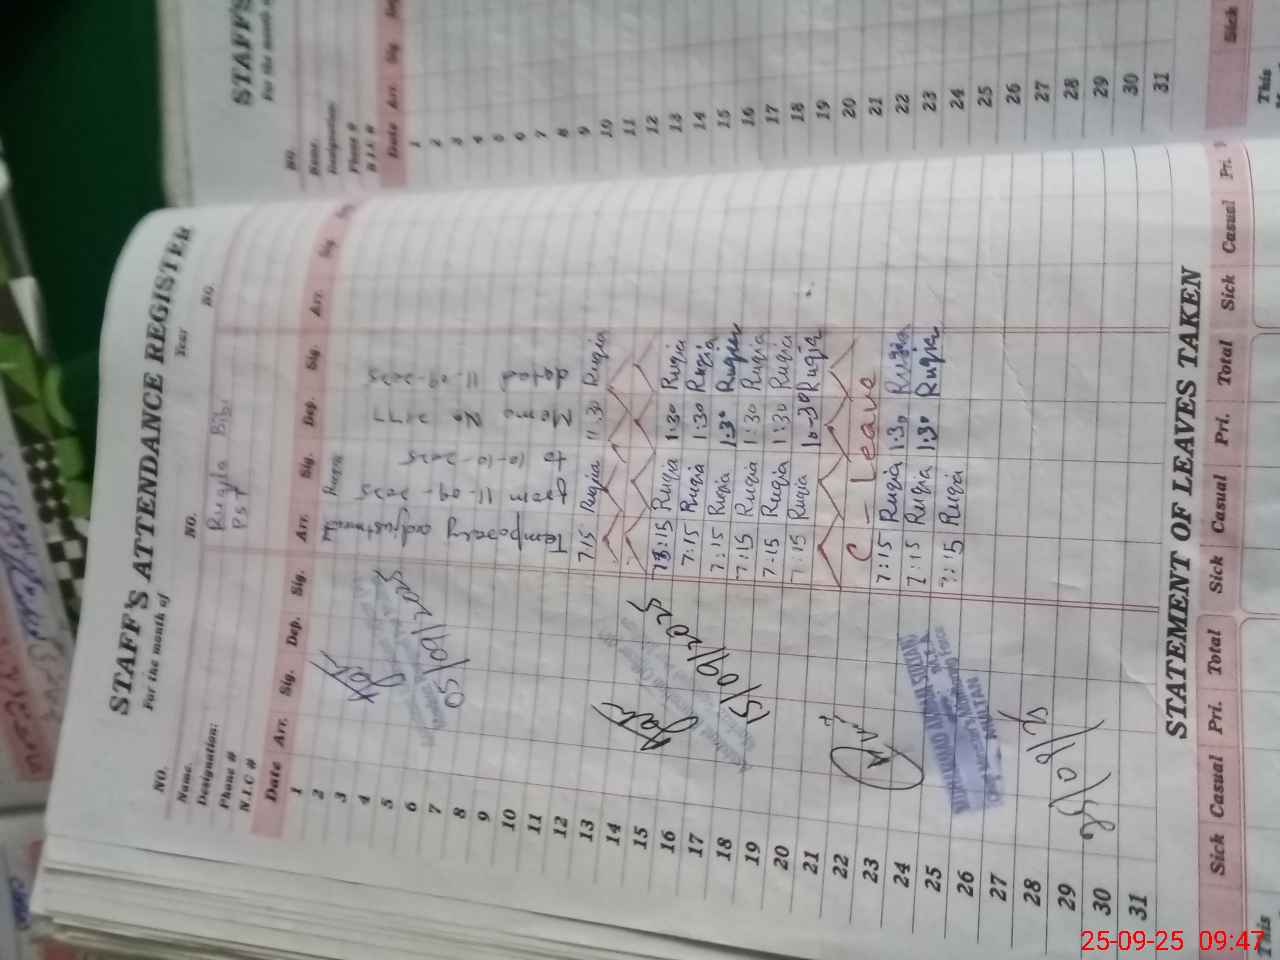 STAFF'S ATTENDANCE REGISTER
For the month of
Year
NO.
NO.
NO.
Name.
Designation:
Phone #
N.I.C #
Ruqia Bibi
PST
Date Arr. Sig. Dep. Sig. Arr. Sig. Dep. Sig. Arr. Sig
1
2
3
4
5
6
7
8
9
10
11
12
13
14
15
16
17
18
19
20
21
22
23
24
25
26
27
28
29
30
31
Temporary adjustment
from 11-09-2025
to 10-10-2025
Memo No 2177
dated 11-09-2025
7:15 Ruqia 11:30 Ruqia
7:15 Ruqia 1:30 Ruqia
7:15 Ruqia 1:30 Ruqia
7:15 Ruqia 1:30 Ruqia
7:15 Ruqia 1:30 Ruqia
7:15 Ruqia 1:30 Ruqia
7:15 Ruqia 10-30 Ruqia
C - Leave
7:15 Ruqia 1:30 Ruqia
7:15 Ruqia 1:30 Ruqia
7:15 Ruqia
05/09/2025
15/09/2025
25/09/25
STATEMENT OF LEAVES TAKEN
Sick Casual Pri. Total Sick Casual Pri. Total Sick Casual Pri.
This
STAFF'S
For the month of
NO.
Name.
Designation:
Phone #
N.I.C #
Date Arr. Sig.
1
2
3
4
5
6
7
8
9
10
11
12
13
14
15
16
17
18
19
20
21
22
23
24
25
26
27
28
29
30
31
Sick
This
25-09-25 09:47